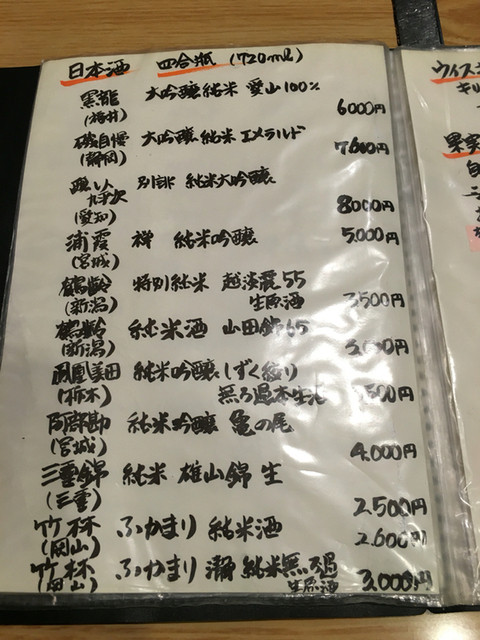 日本酒 四合瓶 (720ml)
黒龍 大吟醸純米 愛山100%
(福井) 6000円
磯自慢 大吟醸 純米 エメラルド
(静岡) 7600円
醸し人 別誂 純米大吟醸
九平次
(愛知) 8000円
浦霞 禅 純米吟醸 5.000円
(宮城)
鶴齢 特別純米 越淡麗55
(新潟) 生原酒 3,500円
鶴齢 純米酒 山田錦65
(新潟) 円
鳳凰美田 純米吟醸 しずく絞り
(栃木) 無ろ過本生 500円
阿部勘 純米吟醸 亀の尾
(宮城) 4.000円
三重錦 純米 雄山錦 生
(三重) 2.500円
竹林 ふかまり 純米酒
(岡山) 2.600円
竹林 ふかまり 瀞 純米無ろ過
(岡山) 生原酒 3,000円
ウィス
キリ
果実
自